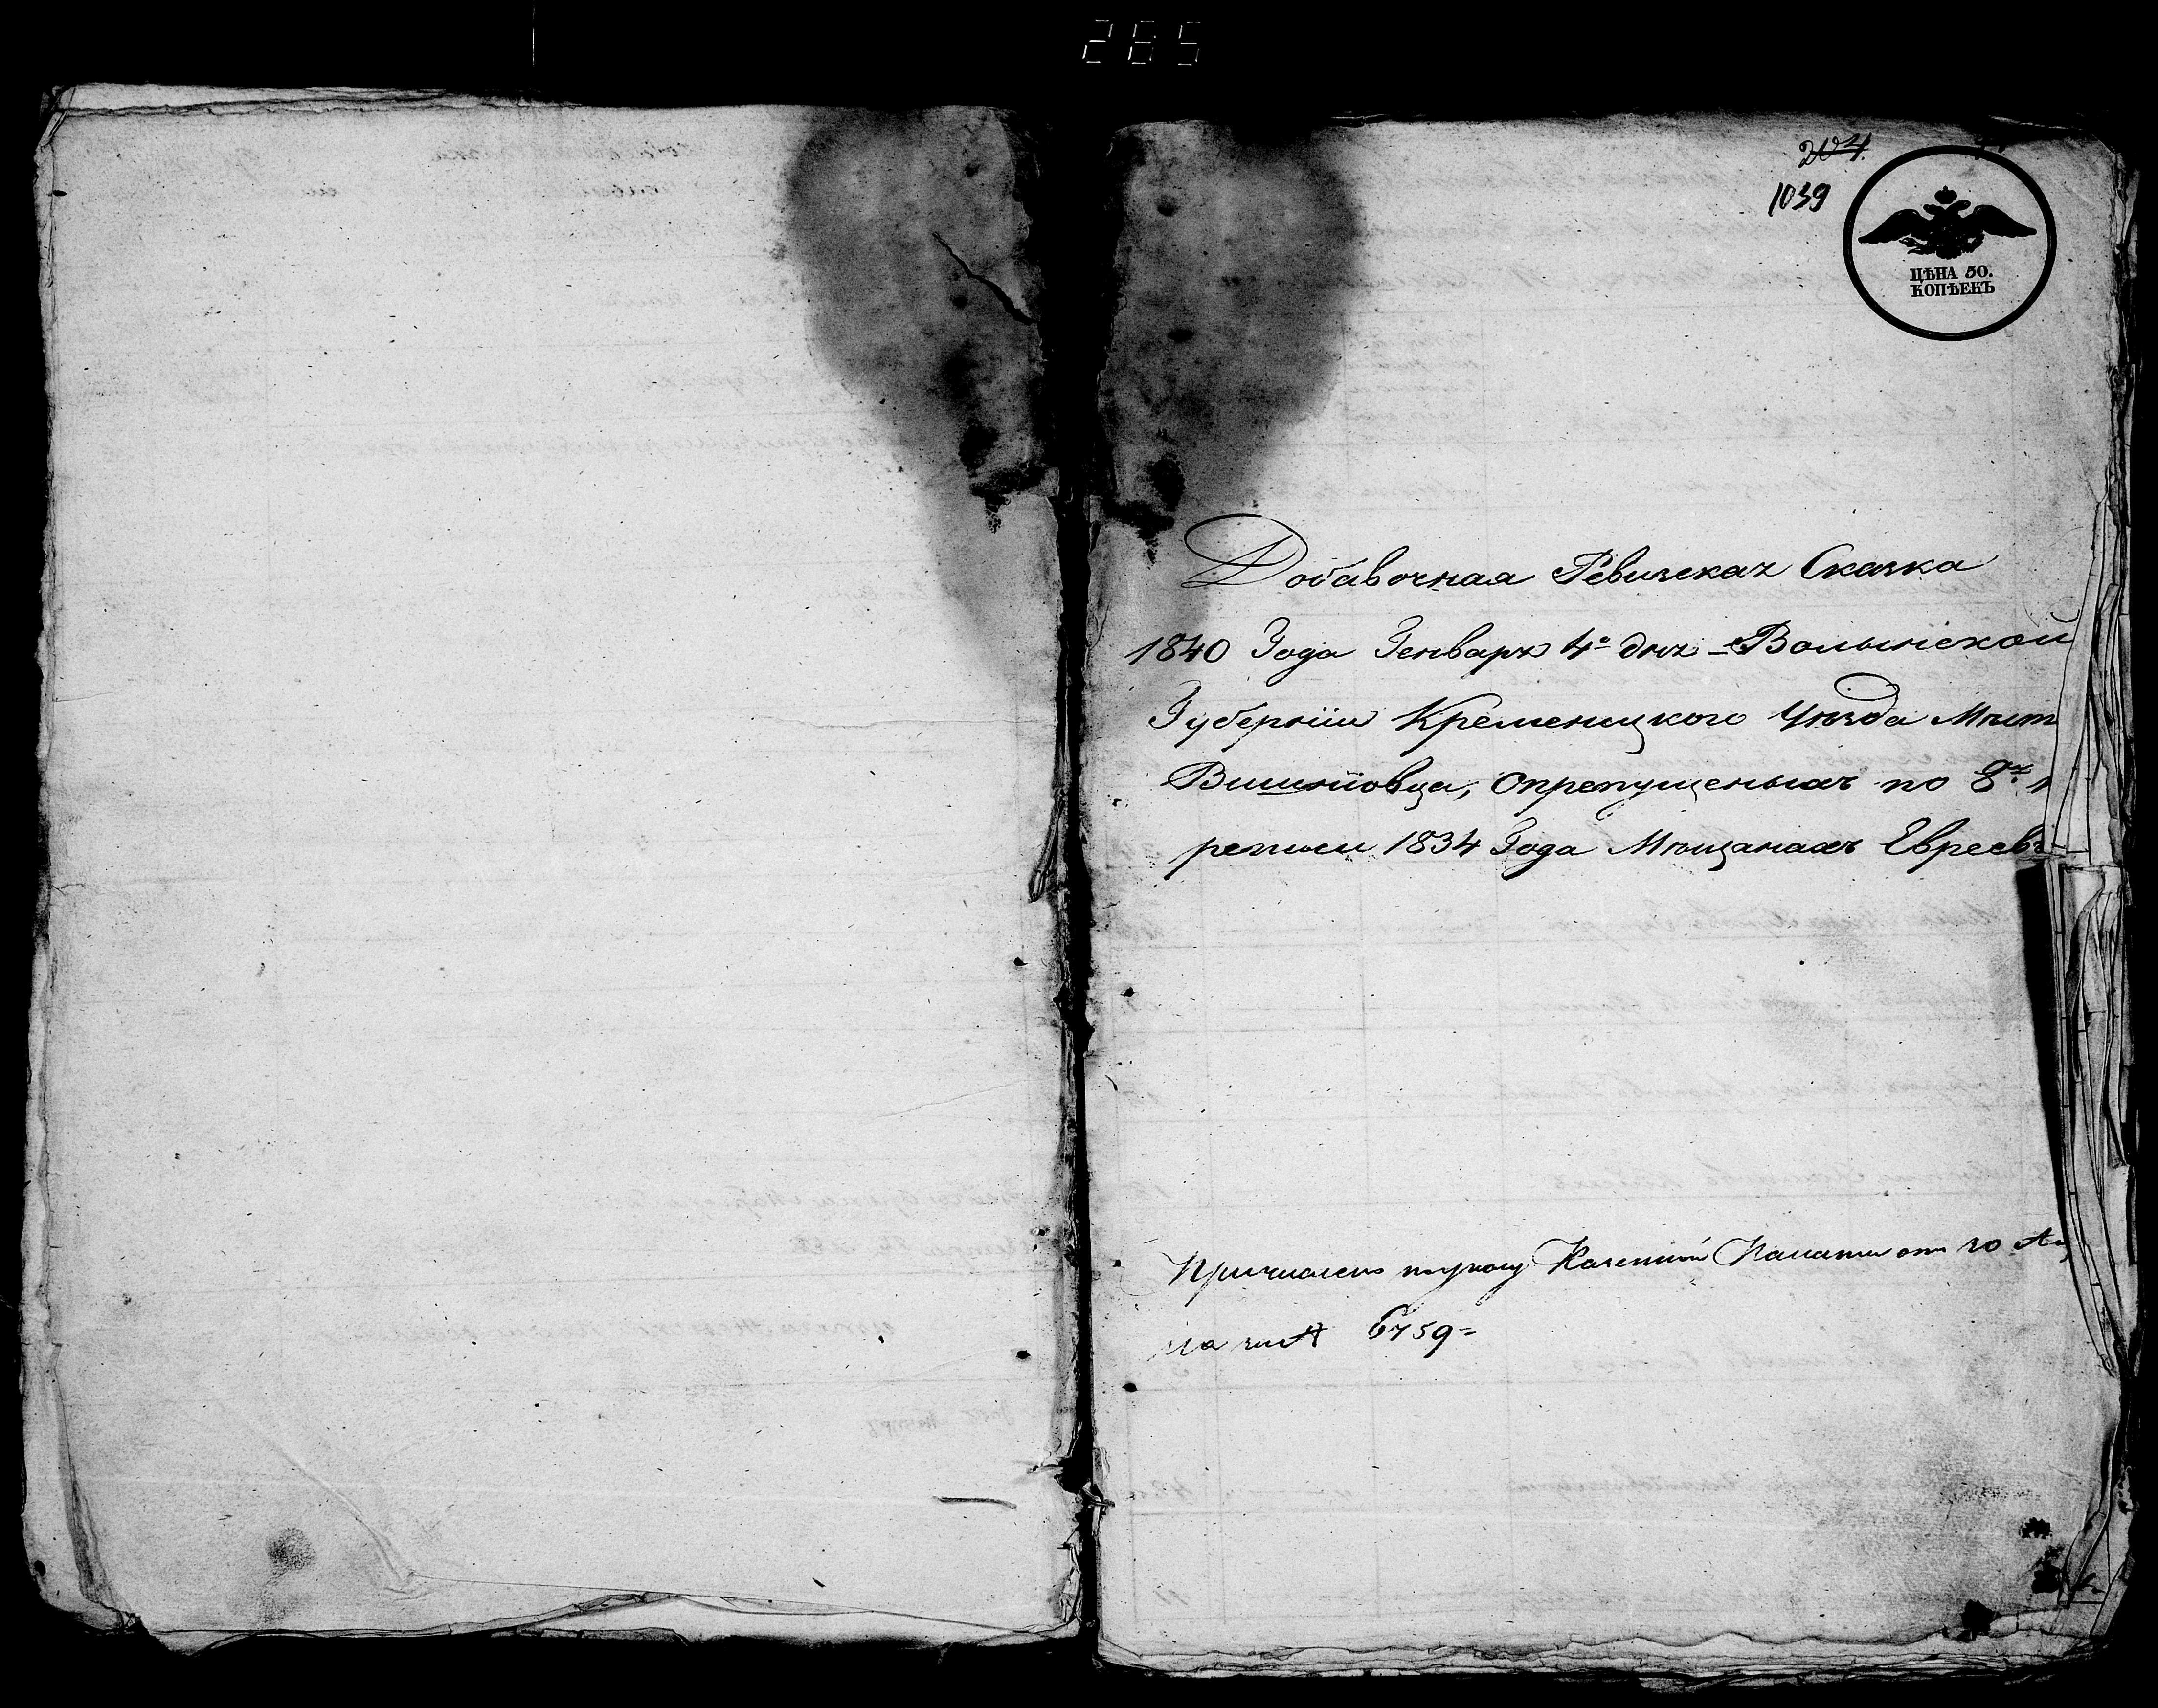 265
204.
1039
ЦѢНА 50.
КОПѢЕКЪ
Добавочная Ревизская Сказка
1840 Года Генваря 4го дня Волынской
Губерніи Кременецкого Уѣзда Мѣст
Вишнiовца, Опропущеныхъ по 8й
реписи 1834 Года Мѣщанахъ Евреевъ
Причислен по указу Казенной Палаты от 20
6759